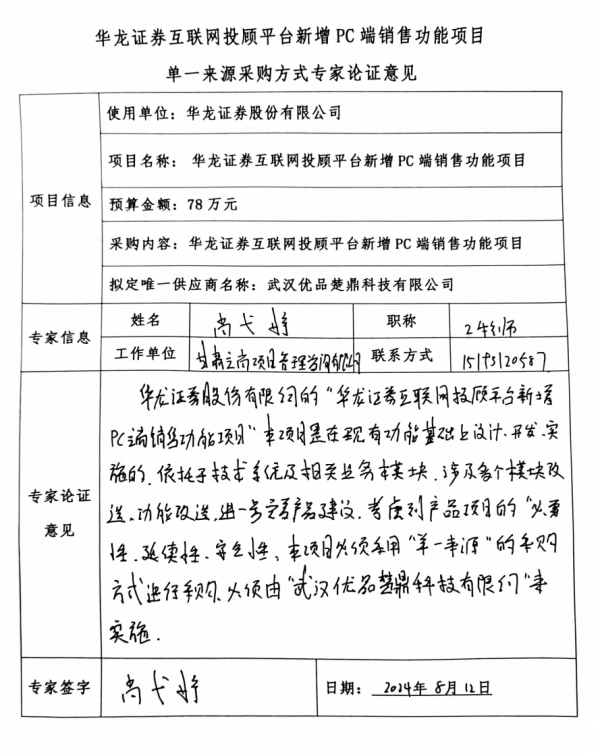 华龙证券互联网投顾平台新增PC端销售功能项目
单一来源采购方式专家论证意见
项目信息
使用单位：华龙证券股份有限公司
项目名称： 华龙证券互联网投顾平台新增PC端销售功能项目
预算金额：78万元
采购内容：华龙证券互联网投顾平台新增PC端销售功能项目
拟定唯一供应商名称：武汉优品楚鼎科技有限公司
专家信息
姓名
尚弋婷
职称
工程师
工作单位
甘肃立尚项目管理咨询有限公司
联系方式
专家论证
意见
华龙证券股份有限公司的“华龙证券互联网投顾平台新增
PC端销售功能项目”本项目是在现有功能基础上设计、开发、实
施的，依托于技术系统及相关业务本模块，涉及多个模块改
造、功能改造，进一步完善产品建设，考虑到产品项目的“必要
性、延续性、安全性，本项目必须采用“单一来源”的采购
方式进行采购，必须由“武汉优品楚鼎科技有限公司”来
实施．
专家签字
尚弋婷
日期： 2024年8月12日